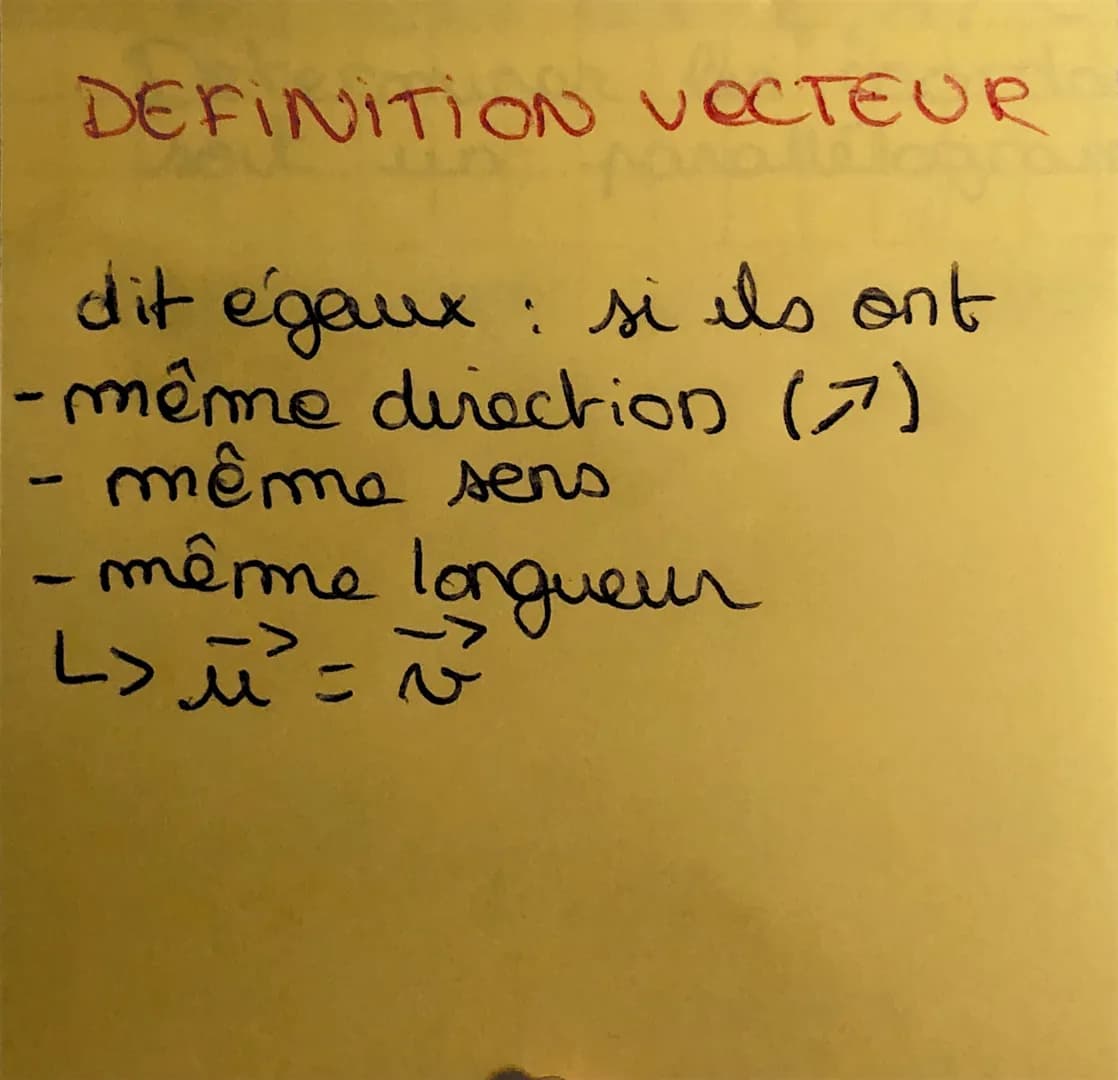 DEFINITION VECTEUR
dit égaux : si ils ont
- même direction (↗)
- même sens
- même longueur
↳ u⃗ = v⃗